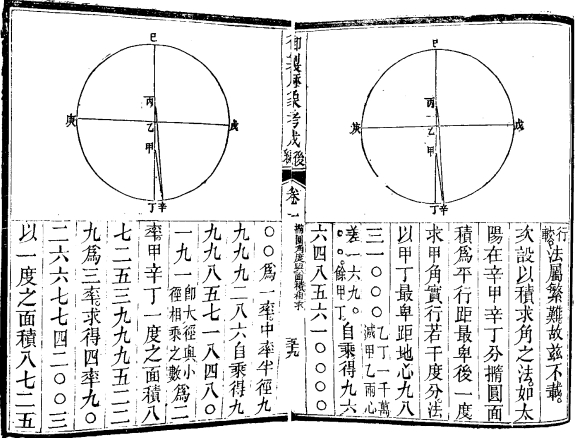 巳
丙
乙
甲
戌
庚
丁辛
行較法屬繁難故兹不載
次設以積求角之法如太
陽在辛甲辛丁分撱圓面
積爲平行距最卑後一度
求甲角實行若干度分法
以甲丁最卑距地心九八
三一〇〇〇乙丁一千萬減甲乙兩心
差一六九〇〇〇餘甲丁自乘得九六
六四八五六一〇〇〇〇
御製厯象考成後編
卷一
撱圓角度與面積相求
巳
丙
乙
甲
戌
庚
丁辛
〇〇爲一率中率半徑九
九九九二八六自乘得九
九九八五七一八四八〇
一九一即大徑與小徑相乘之數爲二
率甲辛丁一度之面積八
七二五三九九九五二二
九爲三率求得四率九〇
二六六七七四二〇〇三
以一度之面積八七二五